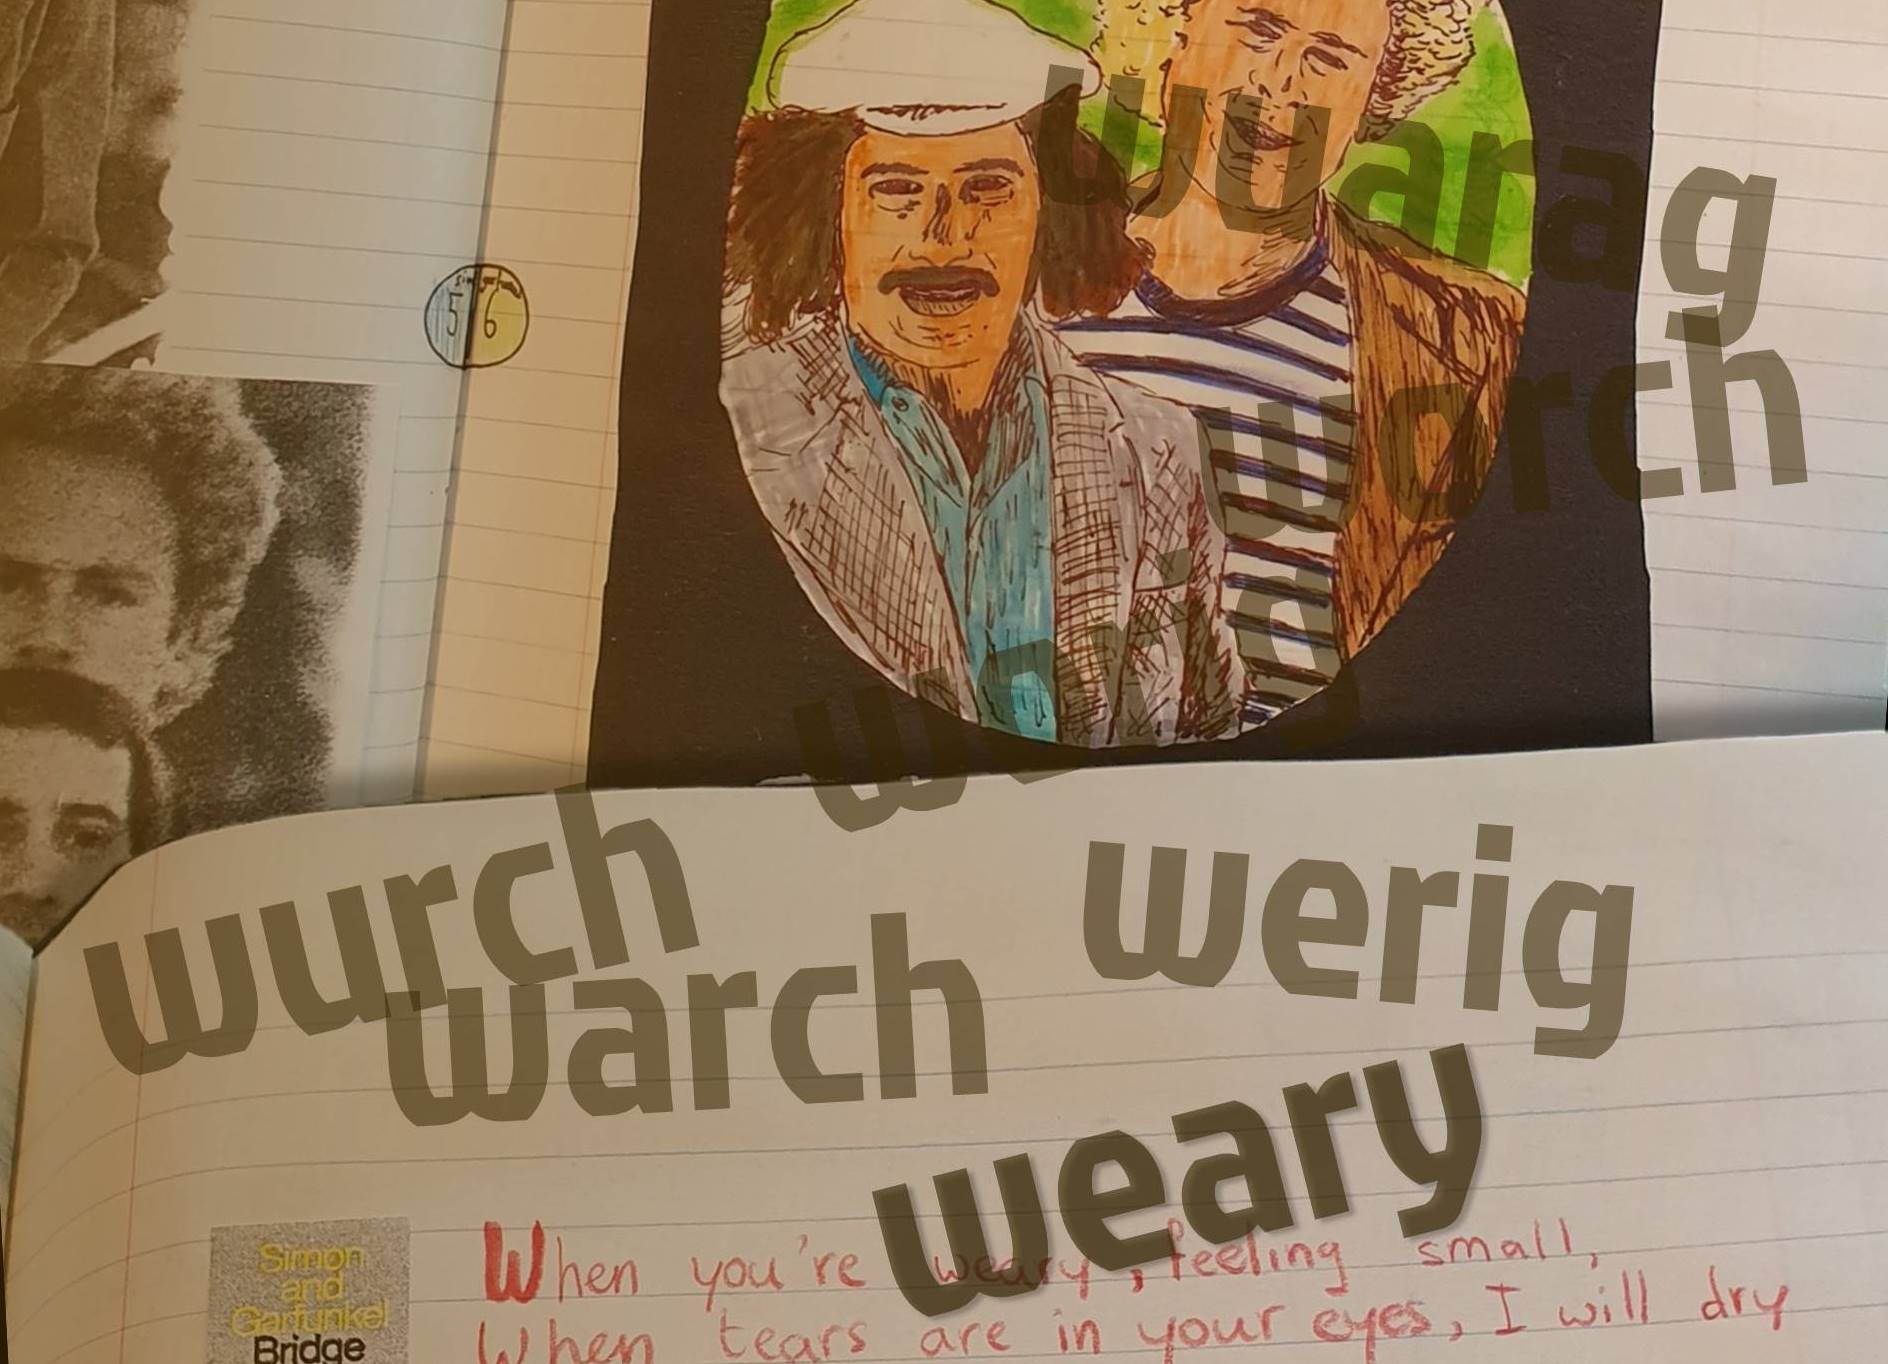 wuarag
worch
5
6
worig
wurch
werig
warch
weary
Simon
and
Garfunkel
Bridge
When you're weary, feeling small,
When tears are in your eyes, I will dry